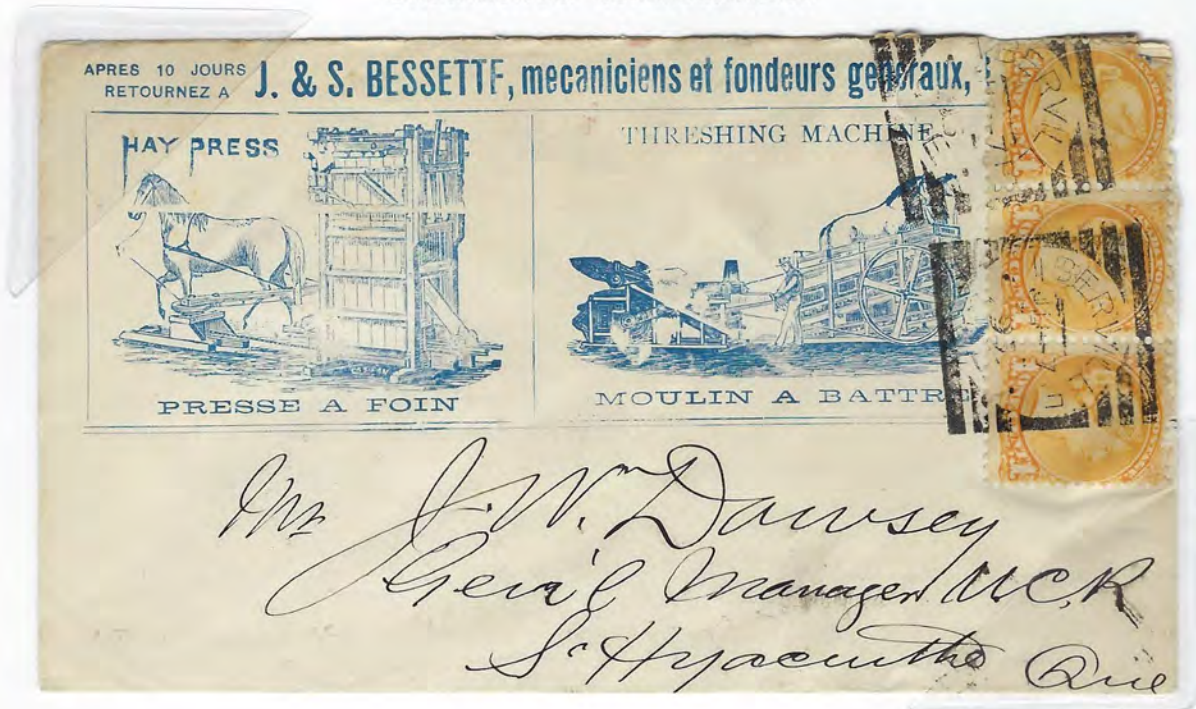 APRES 10 JOURS
RETOURNEZ A
J. & S. BESSETTE, mecaniciens et fondeurs generaux,
HAY PRESS
THRESHING MACHINE
PRESSE A FOIN
MOULIN A BATTRE
IBERVI
Mr J. Wm Dawsey
Gen'l Manager U.C.R
St Hyacinthe Que